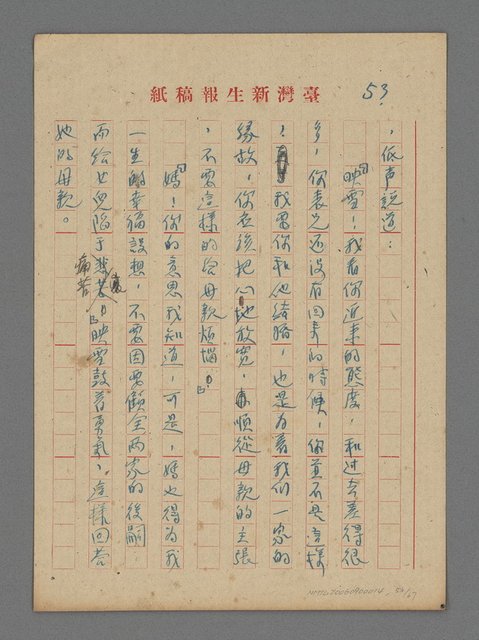 臺灣新生報稿紙
53.
，低声説道：
「映雪！我看你近來的態度，和过去差得很
多，你表兄还沒有回来的時候，你並不是這樣
！我要你和他結婚，也是为着我们一家的
緣故，你应該把心地放寬，順從母親的主張
，不要這樣的给母親煩惱。」
「媽！你的意思我知道，可是，媽也得为我
一生的幸福設想，不要因要顧全兩家的後嗣，
而給女兒陷于痛苦裏。」映雪鼓着勇氣，這樣回答
她的母親。
NMTL20060900014，53/67